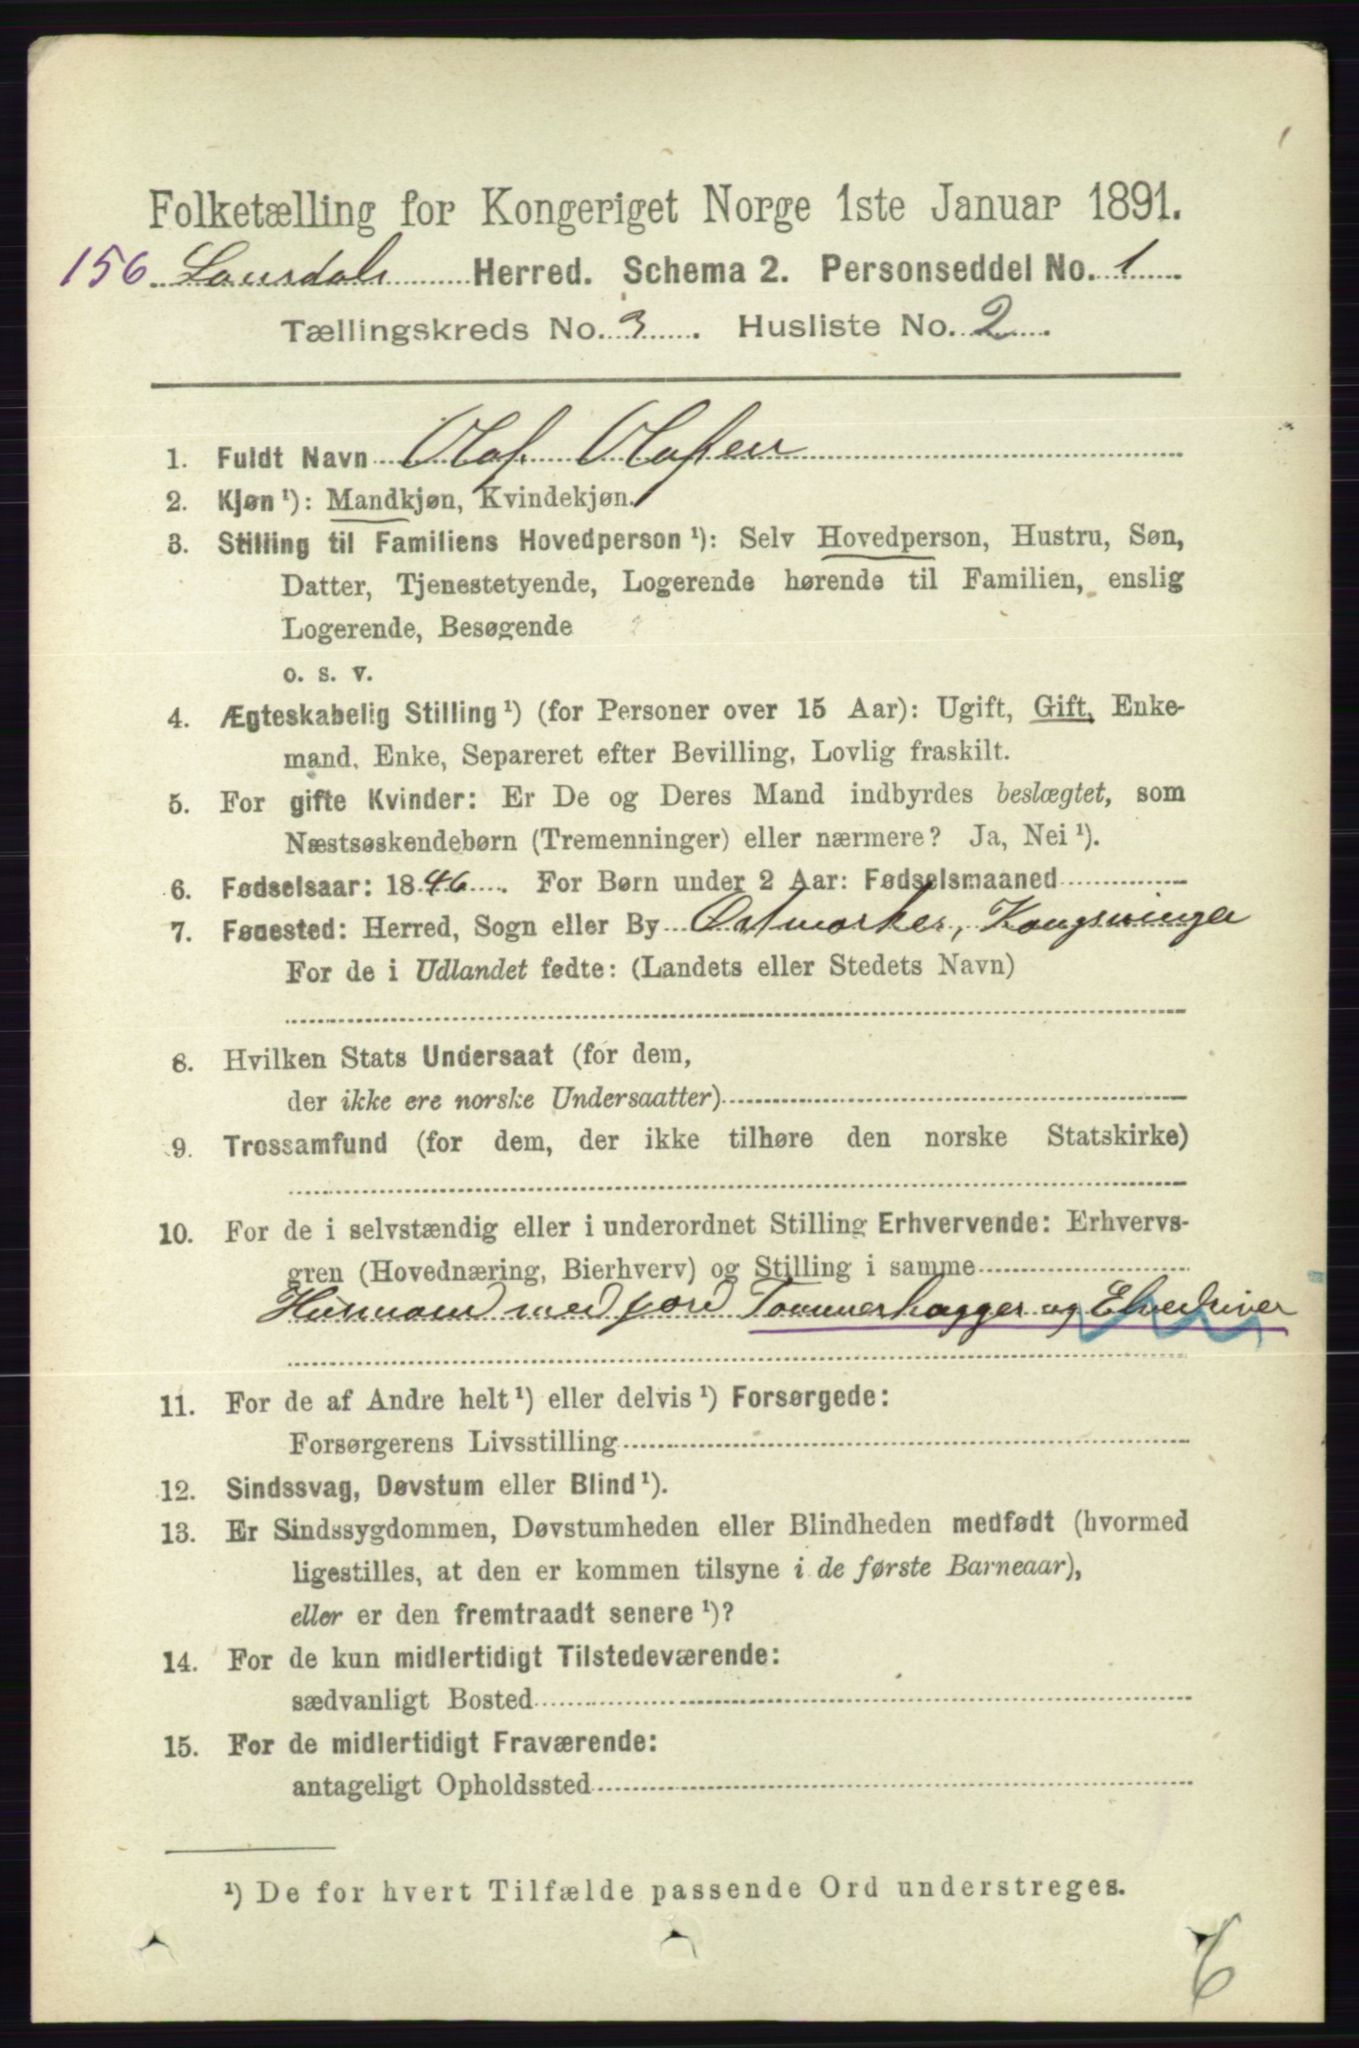 Folketælling for Kongeriget Norge 1ste Januar 1891.
156 Laurdals Herred. Schema 2. Personseddel No. 1
Tællingskreds No. 3. Husliste No. 2.
1. Fuldt Navn Olaf Olafsen
2. Kjøn ¹): Mandkjøn, Kvindekjøn.
3. Stilling til Familiens Hovedperson ¹): Selv Hovedperson, Hustru, Søn,
Datter, Tjenestetyende, Logerende hørende til Familien, enslig
Logerende, Besøgende
o. s. v.
4. Ægteskabelig Stilling ¹) (for Personer over 15 Aar): Ugift, Gift, Enke-
mand, Enke, Separeret efter Bevilling, Lovlig fraskilt.
5. For gifte Kvinder: Er De og Deres Mand indbyrdes beslægtet, som
Næstsøskendebørn (Tremenninger) eller nærmere? Ja, Nei ¹).
6. Fødselsaar: 1846. For Børn under 2 Aar: Fødselsmaaned
7. Fødested: Herred, Sogn eller By Østmarker, Kongsvinger
For de i Udlandet fødte: (Landets eller Stedets Navn)
8. Hvilken Stats Undersaat (for dem,
der ikke ere norske Undersaatter)
9. Trossamfund (for dem, der ikke tilhøre den norske Statskirke)
10. For de i selvstændig eller i underordnet Stilling Erhvervende: Erhvervs-
gren (Hovednæring, Bierhverv) og Stilling i samme
Husmand med jord Tømmerhugger og Elvedriver
11. For de af Andre helt ¹) eller delvis ¹) Forsørgede:
Forsørgerens Livsstilling
12. Sindssvag, Døvstum eller Blind ¹).
13. Er Sindssygdommen, Døvstumheden eller Blindheden medfødt (hvormed
ligestilles, at den er kommen tilsyne i de første Barneaar),
eller er den fremtraadt senere ¹)?
14. For de kun midlertidigt Tilstedeværende:
sædvanligt Bosted
15. For de midlertidigt Fraværende:
antageligt Opholdssted
¹) De for hvert Tilfælde passende Ord understreges.